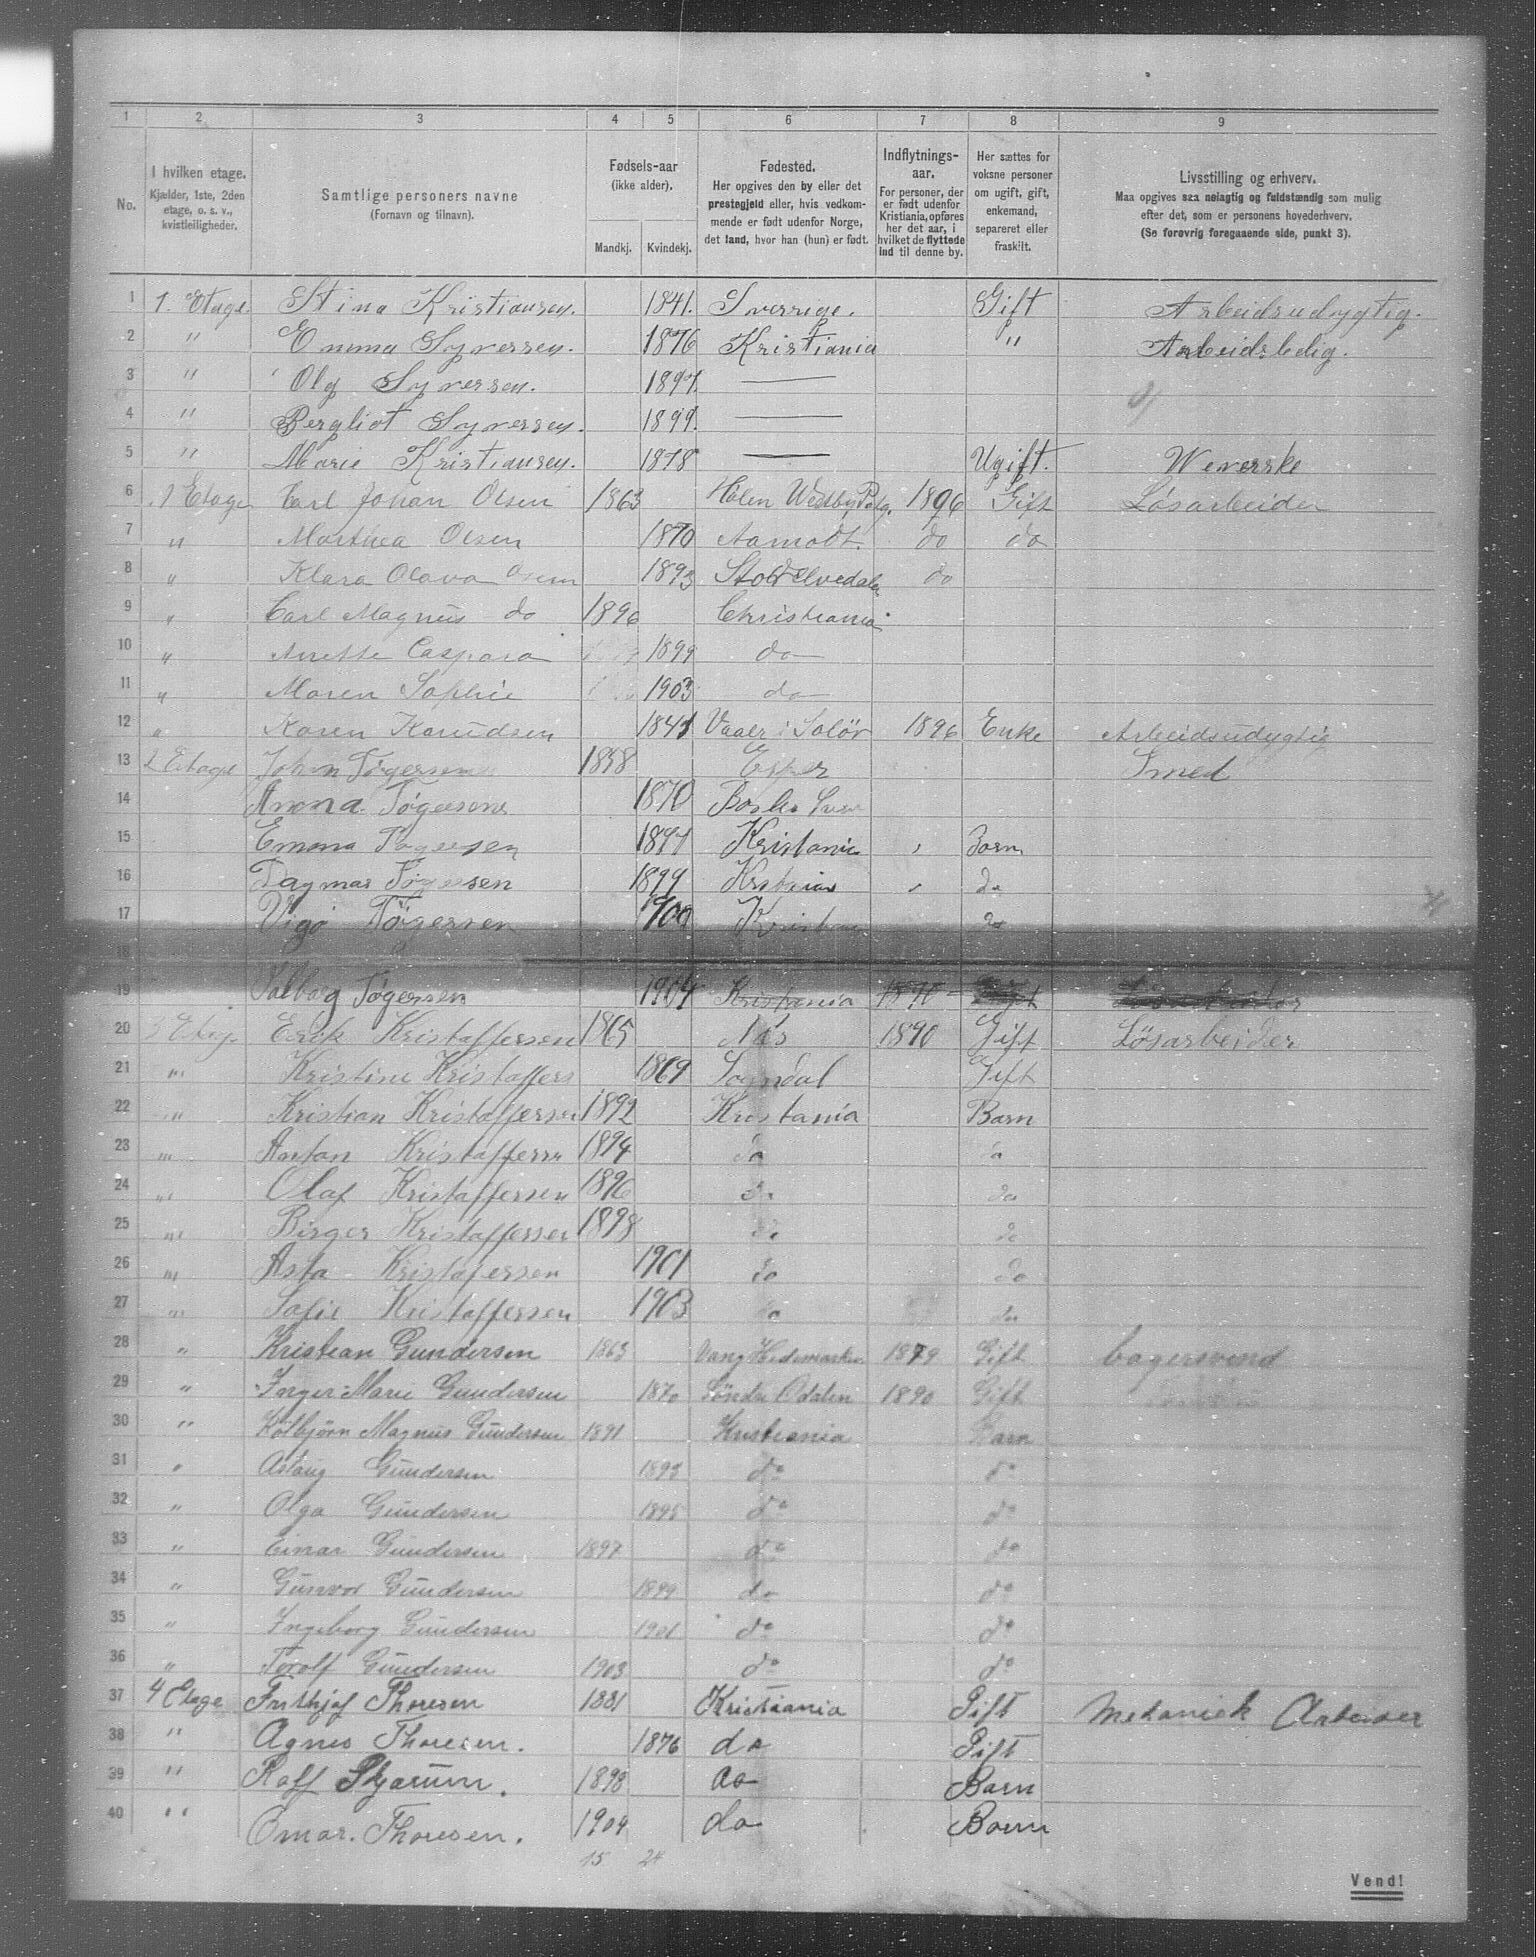 1 2 3 4 5 6 7 8 9
No.
I hvilken etage.
Kjælder, 1ste, 2den
etage, o. s. v.,
kvistleiligheder.
Samtlige personers navne
(Fornavn og tilnavn).
Fødsels-aar
(ikke alder).
Mandkj. Kvindekj.
Fødested.
Her opgives den by eller det
prestegjeld eller, hvis vedkom-
mende er født udenfor Norge,
det land, hvor han (hun) er født.
Indflytnings-
aar.
For personer, der
er født udenfor
Kristiania, opføres
her det aar, i
hvilket de flyttede
ind til denne by.
Her sættes for
voksne personer
om ugift, gift,
enkemand,
separeret eller
fraskilt.
Livsstilling og erhverv.
Maa opgives saa nøiagtig og fuldstændig som mulig
efter det, som er personens hovederhverv.
(Se forøvrig foregaaende side, punkt 3).
1 1. Etage Stina Kristiansen. 1841. Sverrige. Gift Arbeidsudygtig.
2 " Emma Syversen. 1876 Kristiania " Arbeidsledig.
3 " Olg Syversen. 1897. —
4 " Bergliot Syversen. 1899. —
5 " Marie Kristiansen. 1878 — Ugift. Weverske
6 1 Etage Carl Johan Olsen 1863 Hølen 1896 Gift Løsarbeider
7 " Marthea Olsen 1870 Aamodt. do do
8 " Klara Olava Olsen 1893 Stor Elvedalen do
9 " Carl Magnus do 1896 Christiania
10 " Anette Caspara 1899 do
11 " Maren Sophie 1903 do
12 " Karen Knudsen 1841 Vaaler i Solør 1896 Enke Arbeidsudygtig
13 2 Etage Johan Tøgersen 1858 Smed
14 Anna Tøgersen 1870
15 Emma Tøgersen 1897 Kristania Barn
16 Dagmar Tøgersen 1899 Kristania do
17 Vigo Tøgersen 1900 Kristania do
18
19 Valborg Tøgersen 1904 Kristiania 1890 Gift Løsarbeider
20 3 Etage Erik Kristaffersen 1865 Næs 1890 Gift Løsarbeider
21 " Kristine Kristaffers 1869 Sogndal Gift
22 " Kristian Kristaffersen 1892 Kristania Barn
23 " Anton Kristaffersen 1894 do do
24 " Olaf Kristaffersen 1896 do do
25 " Birger Kristaffersen 1898 do do
26 " Asta Kristafersen 1901 do do
27 " Sofie Kristaffersen 1903 do do
28 " Kristian Gundersen 1863 Vang Hedemarken 1879 Gift bagersvend
29 " Inger Marie Gundersen 1870 Søndre Odalen 1890 Gift
30 " Kolbjørn Magnus Gundersen 1891 Kristiania Barn
31 " Aslaug Gundersen 1893 do do
32 " Olga Gundersen 1895 do do
33 " Einar Gundersen 1897 do do
34 " Gunvor Gundersen 1899 do do
35 " Ingeborg Gundersen 1901 do do
36 " Torolf Gundersen 1903 do do
37 4 Etage Frithjof Thoresen 1881 Kristiania Gift Mekanisk Arbeider
38 " Agnes Thoresen. 1876 do Gift
39 " Rolf 1898 do Barn
40 " Omar. Thoresen. 1904 do Barn
15 24
Vend!